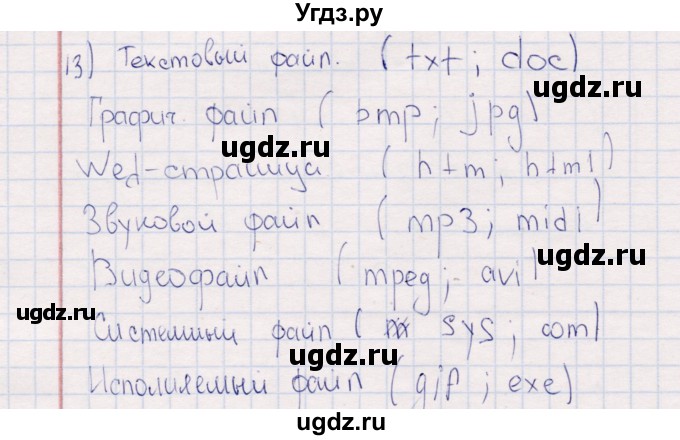 Угдз.ру
13) Текстовый файл. (txt; doc)
ugdz.ru
Графич. файл (bmp; jpg)
ugdz.ru
ugdz.ru
Wed-страница (htm; html)
Звуковой файл (mp3; midi)
ugdz.ru
Видеофайл (mpeg; avi)
ugdz.ru
Системный файл (sys; com)
ugdz.ru
Исполняемый файл (gif; exe)
ugdz.ru
ugdz.ru